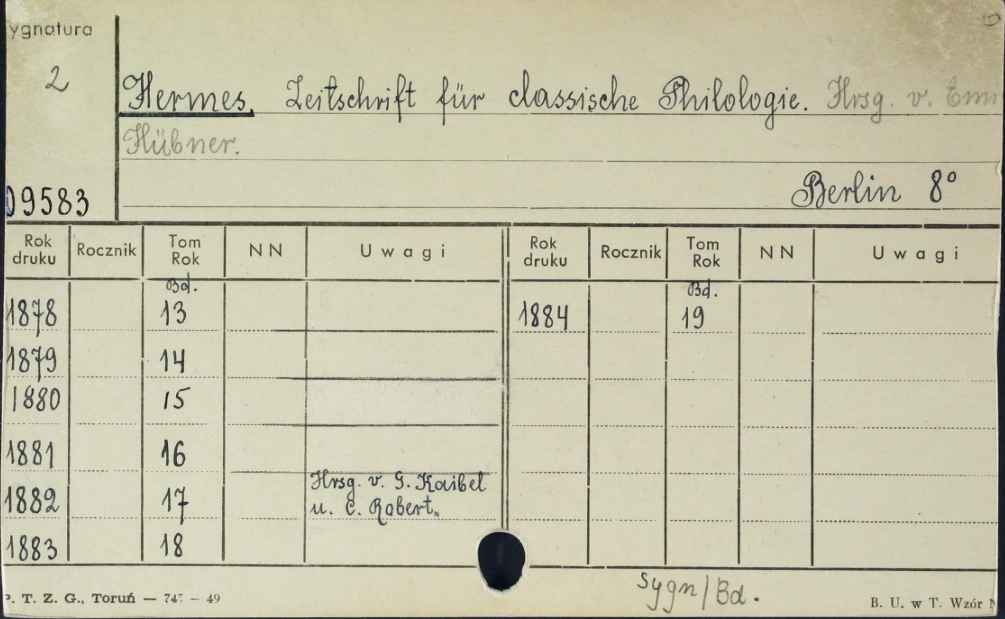 ygnatura
2
Hermes. Zeitschrift für classische Philologie. Hrsg. v.
Hübner.
09583
Berlin 8°
Rok druku Rocznik Tom Rok NN Uwagi Rok druku Rocznik Tom Rok NN Uwagi
Bd. Bd.
1878 13 1884 19
1879 14
1880 15
1881 16
1882 17 Hrsg. v. G. Kaibel
u. C. Robert.
1883 18
Sygn/Bd.
P. T. Z. G., Toruń — 747 – 49
B. U. w T. Wzór